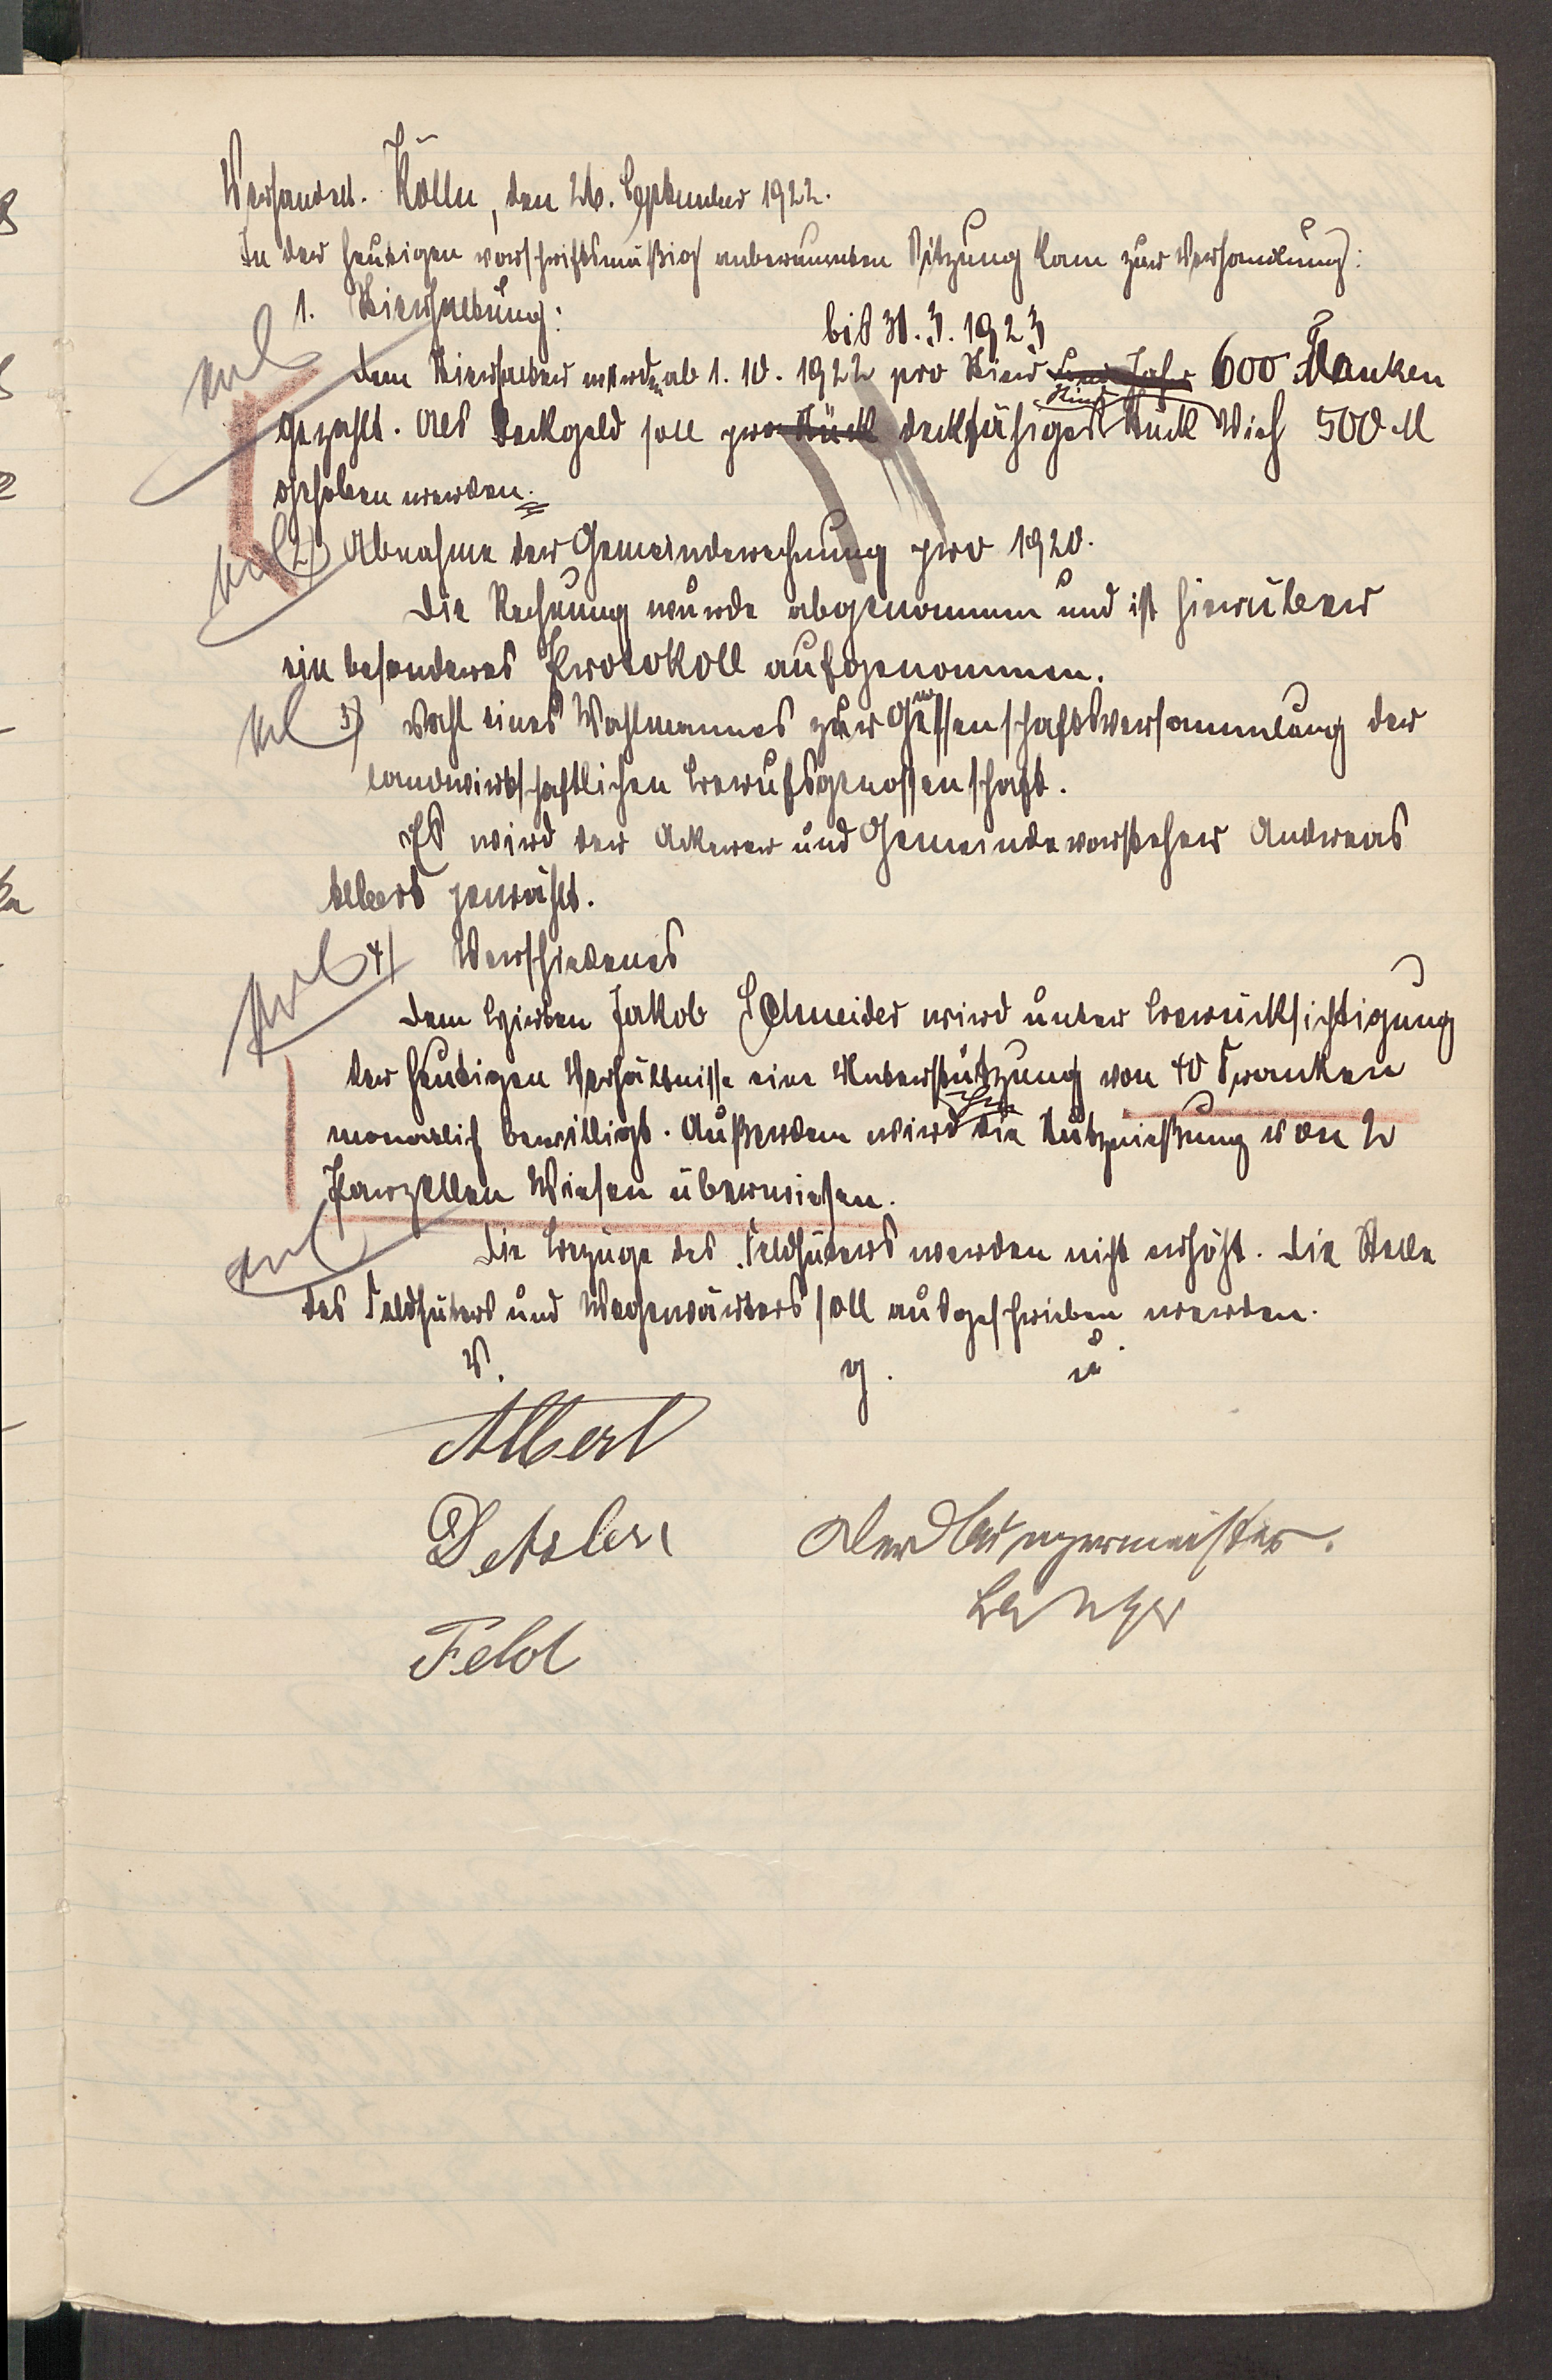 Verhandelt. Kölln, den 26. September 1922.
In der heutigen vorschriftsmäßig anberaumten Sitzung kam zur Verhandlung:
1. Stierhaltung:
bis 31.3.1923
Dem Stierhalter werden ab 1.10.1922 pro Stier und Jahr 600 Franken
gezahlt. Als Deckgeld soll pro Stück deckfähiges Stück Vieh 500 M
erhoben werden.
2) Abnahme der Gemeinderechnung pro 1920.
Die Rechnung wurde abgenommen und ist hierüber
ein besonderes Protokoll aufgenommen.
3) Wahl eines Wahlmannes zur Genossenschaftsversammlung der
landwirtschaftlichen Berufsgenossenschaft.
Es wird der Ackerer und Gemeindevorsteher Andreas
Albert gewählt.
4) Verschiedenes
Dem Hirten Jakob Schneider wird unter Berücksichtigung
der heutigen Verhältnisse eine Unterstützung von 40 Franken
monatlich bewilligt. Außerdem wird ihm die Nutznießung von 2
Parzellen Wiesen überwiesen.
Die Bezüge des Feldhüters werden nicht erhöht. Die Stelle
des Feldhüters und Wegewärters soll ausgeschrieben werden.
v. g. u.
Albert
Der Bürgermeister.
Feld